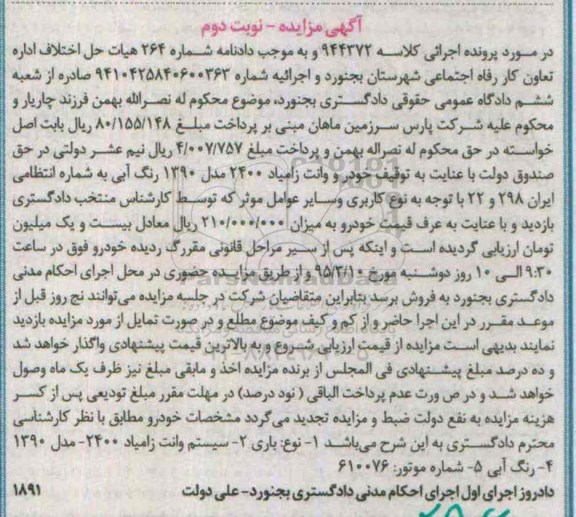 آگهی مزایده - نوبت دوم
در مورد پرونده اجرائی کلاسه ۹۴۴۳۷۲ و به موجب دادنامه شماره ۲۶۴ هیات حل اختلاف اداره
تعاون کار رفاه اجتماعی شهرستان بجنورد و اجرائیه شماره ۹۴۱۰۴۲۵۸۴۰۶۰۰۳۶۳ صادره از شعبه
ششم دادگاه عمومی حقوقی دادگستری بجنورد، موضوع محکوم له نصرالله بهمن فرزند چاریار و
محکوم علیه شرکت پارس سرزمین ماهان مبنی بر پرداخت مبلغ ۸۰/۱۵۵/۱۴۸ ریال بابت اصل
خواسته در حق محکوم له نصراله بهمن و پرداخت مبلغ ۴/۰۰۷/۷۵۷ ریال نیم عشر دولتی در حق
صندوق دولت با عنایت به توقیف خودر و وانت زامیاد ۲۴۰۰ مدل ۱۳۹۰ رنگ آبی به شماره انتظامی
ایران ۲۹۸ و ۲۲ با توجه به نوع کاربری وسایر عوامل موثر که توسط کارشناس منتخب دادگستری
بازدید و با عنایت به عرف قیمت خودرو به میزان ۲۱۰/۰۰۰/۰۰۰ ریال معادل بیست و یک میلیون
تومان ارزیابی گردیده است و اینکه پس از سیر مراحل قانونی مقررگ ردیده خودرو فوق در ساعت
۹:۳۰ الی ۱۰ روز دوشنبه مورخ ۹۵/۳/۱۰ و از طریق مزایده حضوری در محل اجرای احکام مدنی
دادگستری بجنورد به فروش برسد بنابراین متقاضیان شرکت در جلسه مزایده می‌توانند نج روز قبل از
موعد مقرر در این اجرا حاضر و از کم و کیف موضوع مطلع و در صورت تمایل از مورد مزایده بازدید
نمایند بدیهی است مزایده از قیمت ارزیابی شروع و به بالاترین قیمت پیشنهادی واگذار خواهد شد
و ده درصد مبلغ پیشنهادی فی المجلس از برنده مزایده اخذ و مابقی مبلغ نیز ظرف یک ماه وصول
خواهد شد و در ص ورت عدم پرداخت الباقی ( نود درصد) در مهلت مقرر مبلغ تودیعی پس از کسر
هزینه مزایده به نفع دولت ضبط و مزایده تجدید می گردد مشخصات خودرو مطابق با نظر کارشناسی
محترم دادگستری به این شرح می‌باشد ۱- نوع: باری ۲- سیستم وانت زامیاد ۲۴۰۰- مدل ۱۳۹۰
۴- رنگ آبی ۵- شماره موتور: ۶۱۰۰۷۶
دادروز اجرای اول اجرای احکام مدنی دادگستری بجنورد- علی دولت ۱۸۹۱